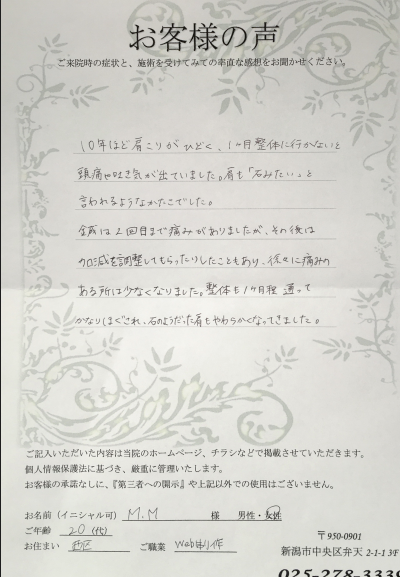 お客様の声
ご来院時の症状と、施術を受けてみての率直な感想をお聞かせください。
10年ほど肩こりがひどく、1ヶ月整体に行かないと
頭痛や吐き気が出ていました。肩も「石みたい」と
言われるようなかたさでした。
鍼は2回目まで痛みがありましたが、その後は
加減を調整してもらったりしたこともあり、徐々に痛みの
ある所は少なくなりました。整体も1ヶ月程 通って
かなりほぐされ、石のようだった肩もやわらかくなってきました。
ご記入いただいた内容は当院のホームページ、チラシなどで掲載させていただきます。
個人情報保護法に基づき、厳重に管理いたします。
お客様の承諾なしに、『第三者への開示』や上記以外での使用はございません。
お名前（イニシャル可） M.M 様 男性・女性
ご年齢 20（代）
お住まい 西区 ご職業 Web制作
〒950-0901
新潟市中央区弁天 2-1-1 3F
025-278-3339